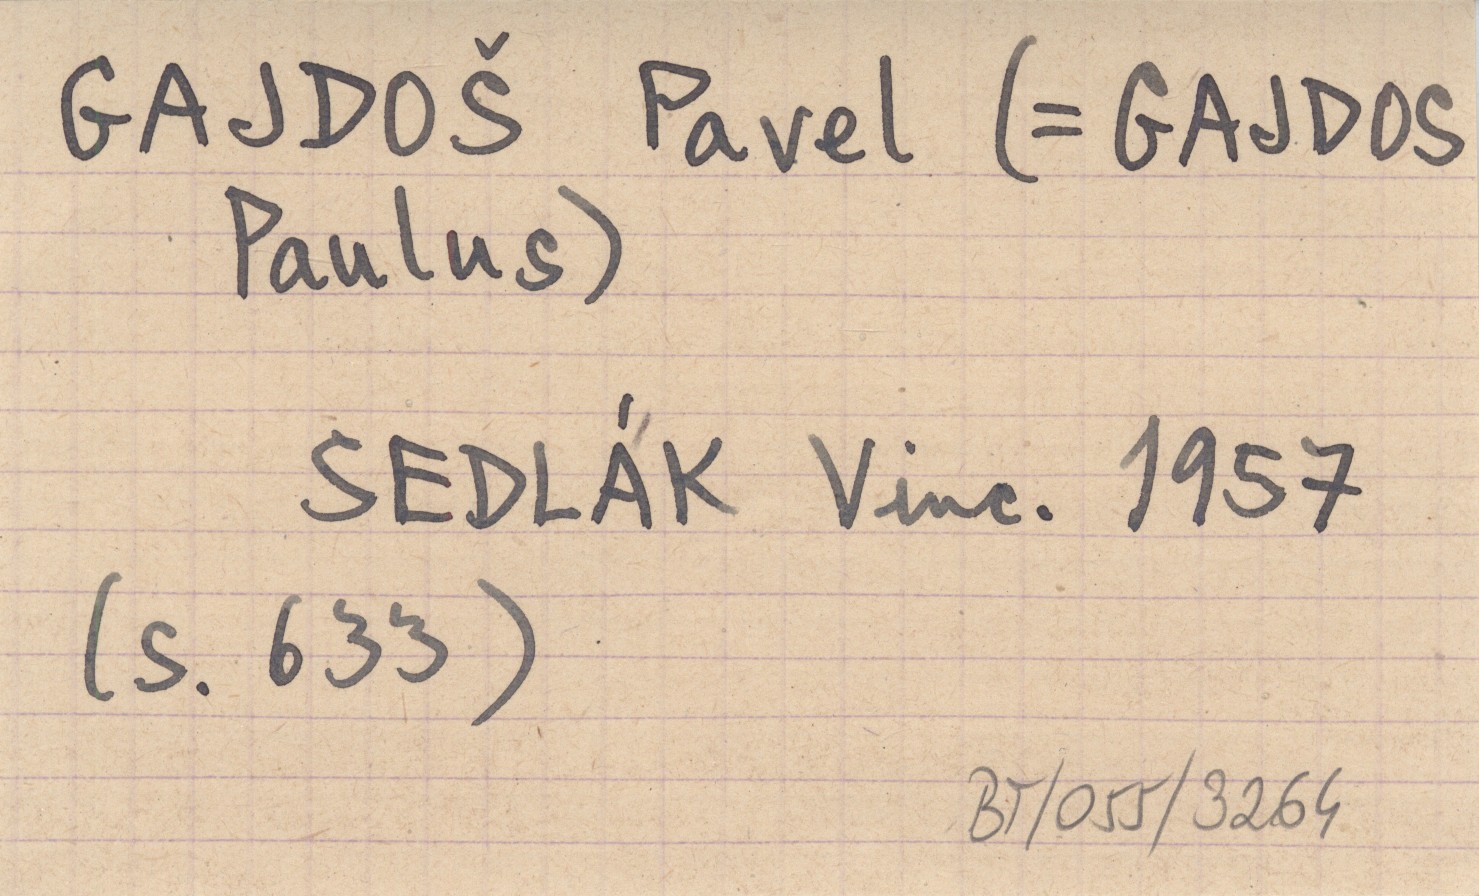 GAJDOŠ Pavel (= GAJDOS
Paulus)
SEDLÁK Vinc. 1957
(s. 633)
BT/055/3264